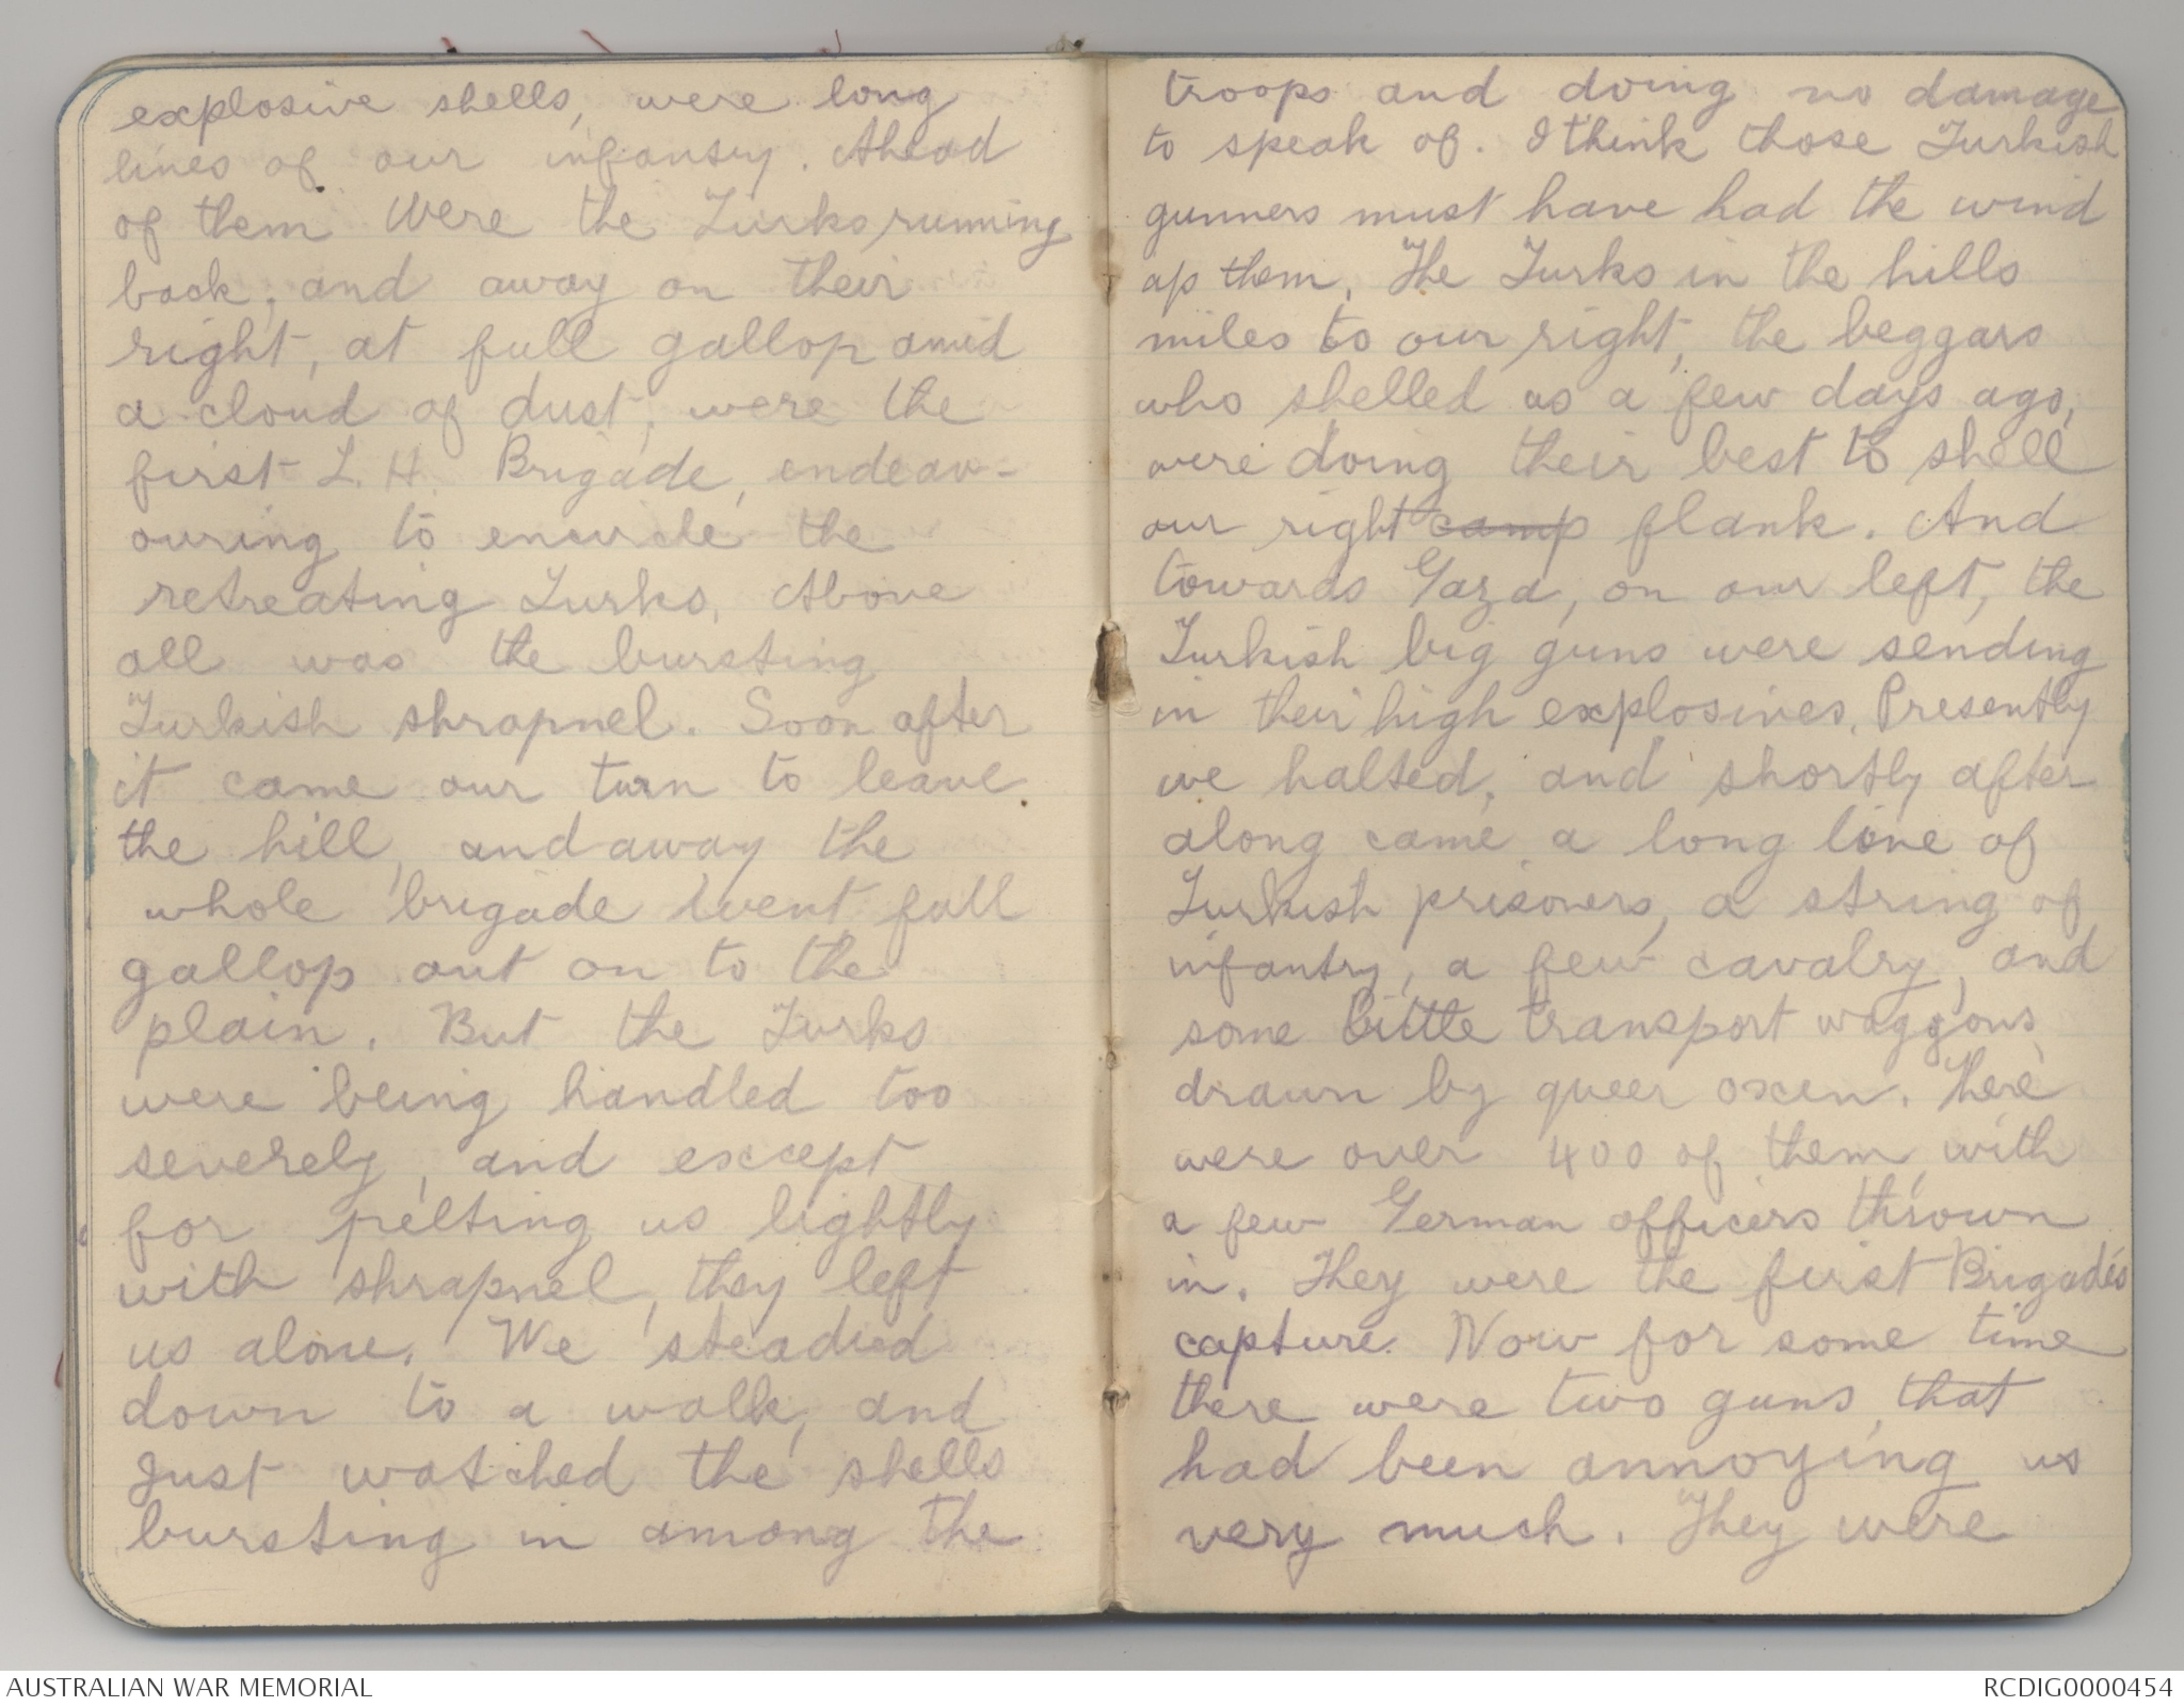 explosive shells, were long
lines of our infantry. Ahead
of them were the Turks running
back, and away on their
right, at full gallop amid
a cloud of dust, were the
first L. H. Brigade, endeav-
ouring to encircle the
retreating Turks. Above
all was the bursting
Turkish shrapnel. Soon after
it came our turn to leave
the hill, and away the
whole brigade went full
gallop out on to the
plain. But the Turks
were being handled too
severely, and except
for pelting us lightly
with shrapnel, they left
us alone. We steadied
down to a walk, and
just watched the shells
bursting in among the
troops and doing no damage
to speak of. I think those Turkish
gunners must have had the wind
up them. The Turks in the hills
miles to our right, the beggars
who shelled us a few days ago,
were doing their best to shell
our right camp flank. And
towards Gaza, on our left, the
Turkish big guns were sending
in their high explosives. Presently
we halted, and shortly after
along came a long line of
Turkish prisoners, a string of
infantry, a few cavalry, and
some little transport waggons
drawn by queer oxen. There
were over 400 of them, with
a few German officers thrown
in. They were the first Brigade's
capture. Now for some time
there were two guns that
had been annoying us
very much. They were
AUSTRALIAN WAR MEMORIAL
RCDIG0000454